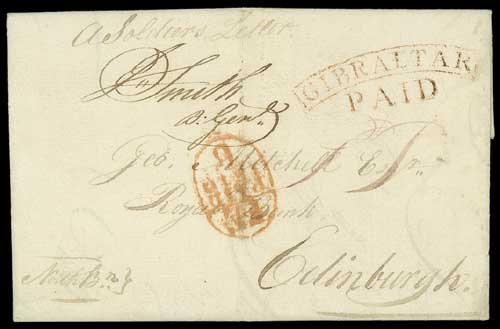 A Soldiers Letter
GIBRALTAR
PAID
Smith
B: Genl.
Geo. Mitchell Esqr.
Royal Bank
Edinburgh.
North Bn.